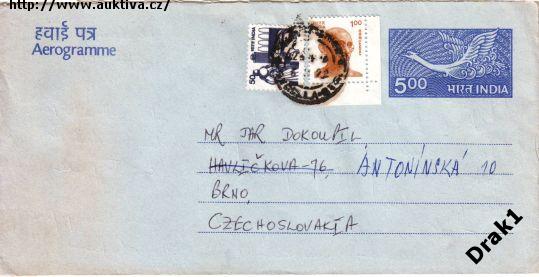 http://www.auktiva.cz/
हवाई पत्र
Aerogramme
50
1.00
5.00
भारत INDIA
MR JAR DOKOUPIL
HAVLIČKOVA-76, ANTONÍNSKÁ 10
BRNO,
CZECHOSLOVAKIA
Drak1